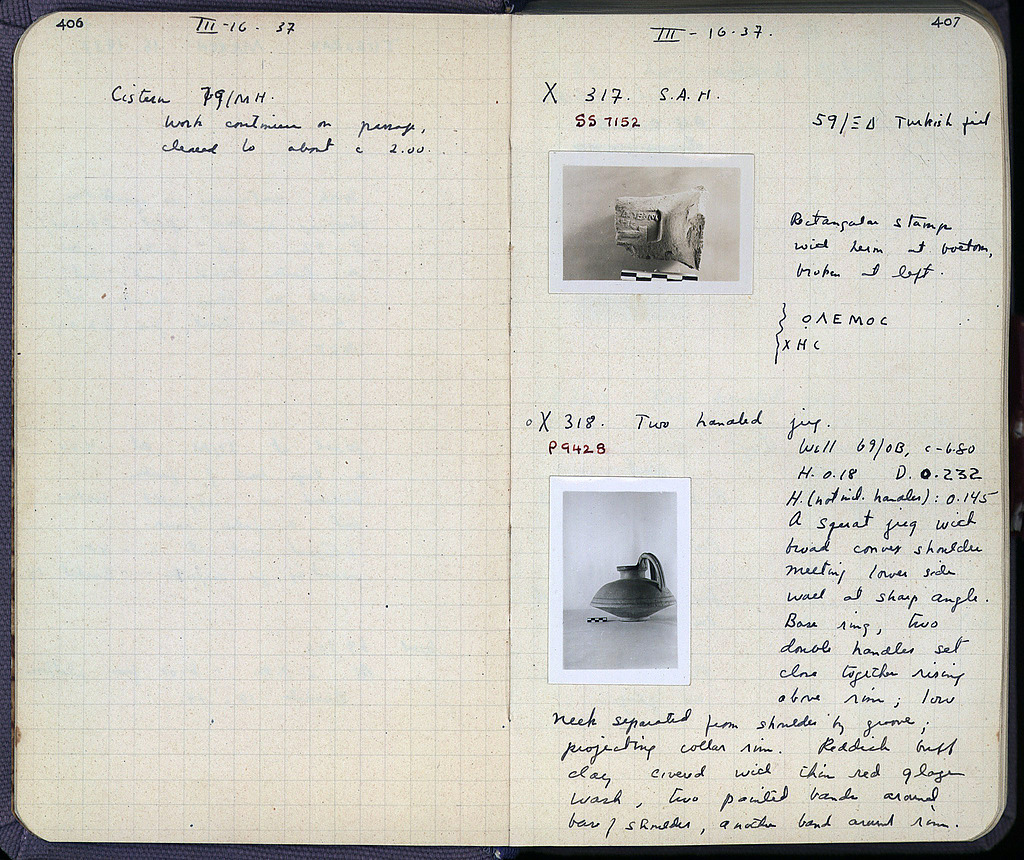 406
III-16. 37
Cistern 79/MH.
Work continues on passage,
cleared to about c 2.00.
407
III - 16.37.
X 317. S.A.H.
SS 7152
59/ΞΔ Turkish
Rectangular stamp
with herm at bottom,
broken at left.
ΟΛΕΜΟC
ΧΗC
X 318. Two handled jug.
P 9428
Well 69/OB, c-6.80
H. 0.18 D. 0.232
H. (not incl. handles): 0.145
A squat jug with
broad convex shoulder
meeting lower side
wall at sharp angle.
Base ring, two
double handles set
close together rising
above rim; low
neck separated from shoulder by groove;
projecting collar rim. Reddish buff
clay covered with thin red glaze
wash, two painted bands around
base / shoulder, another band around rim.